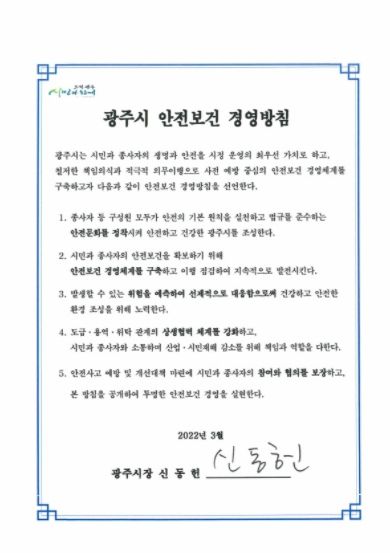 광주시 안전보건 경영방침
광주시는 시민과 종사자의 생명과 안전을 시정 운영의 최우선 가치로 하고,
철저한 책임의식과 적극적 의무이행으로 사전 예방 중심의 안전보건 경영체계를
구축하고자 다음과 같이 안전보건 경영방침을 선언한다.
1. 종사자 등 구성원 모두가 안전의 기본 원칙을 실천하고 법규를 준수하는
안전문화를 정착시켜 안전하고 건강한 광주시를 조성한다.
2. 시민과 종사자의 안전보건을 확보하기 위해
안전보건 경영체계를 구축하고 이행 점검하여 지속적으로 발전시킨다.
3. 발생할 수 있는 위험을 예측하여 선제적으로 대응함으로써 건강하고 안전한
환경 조성을 위해 노력한다.
4. 도급·용역·위탁 관계의 상생협력 체계를 강화하고,
시민과 종사자와 소통하며 산업·시민재해 감소를 위해 책임과 역할을 다한다.
5. 안전사고 예방 및 개선대책 마련에 시민과 종사자의 참여와 협의를 보장하고,
본 방침을 공개하여 투명한 안전보건 경영을 실현한다.
2022년 3월
광주시장 신동헌 신동헌